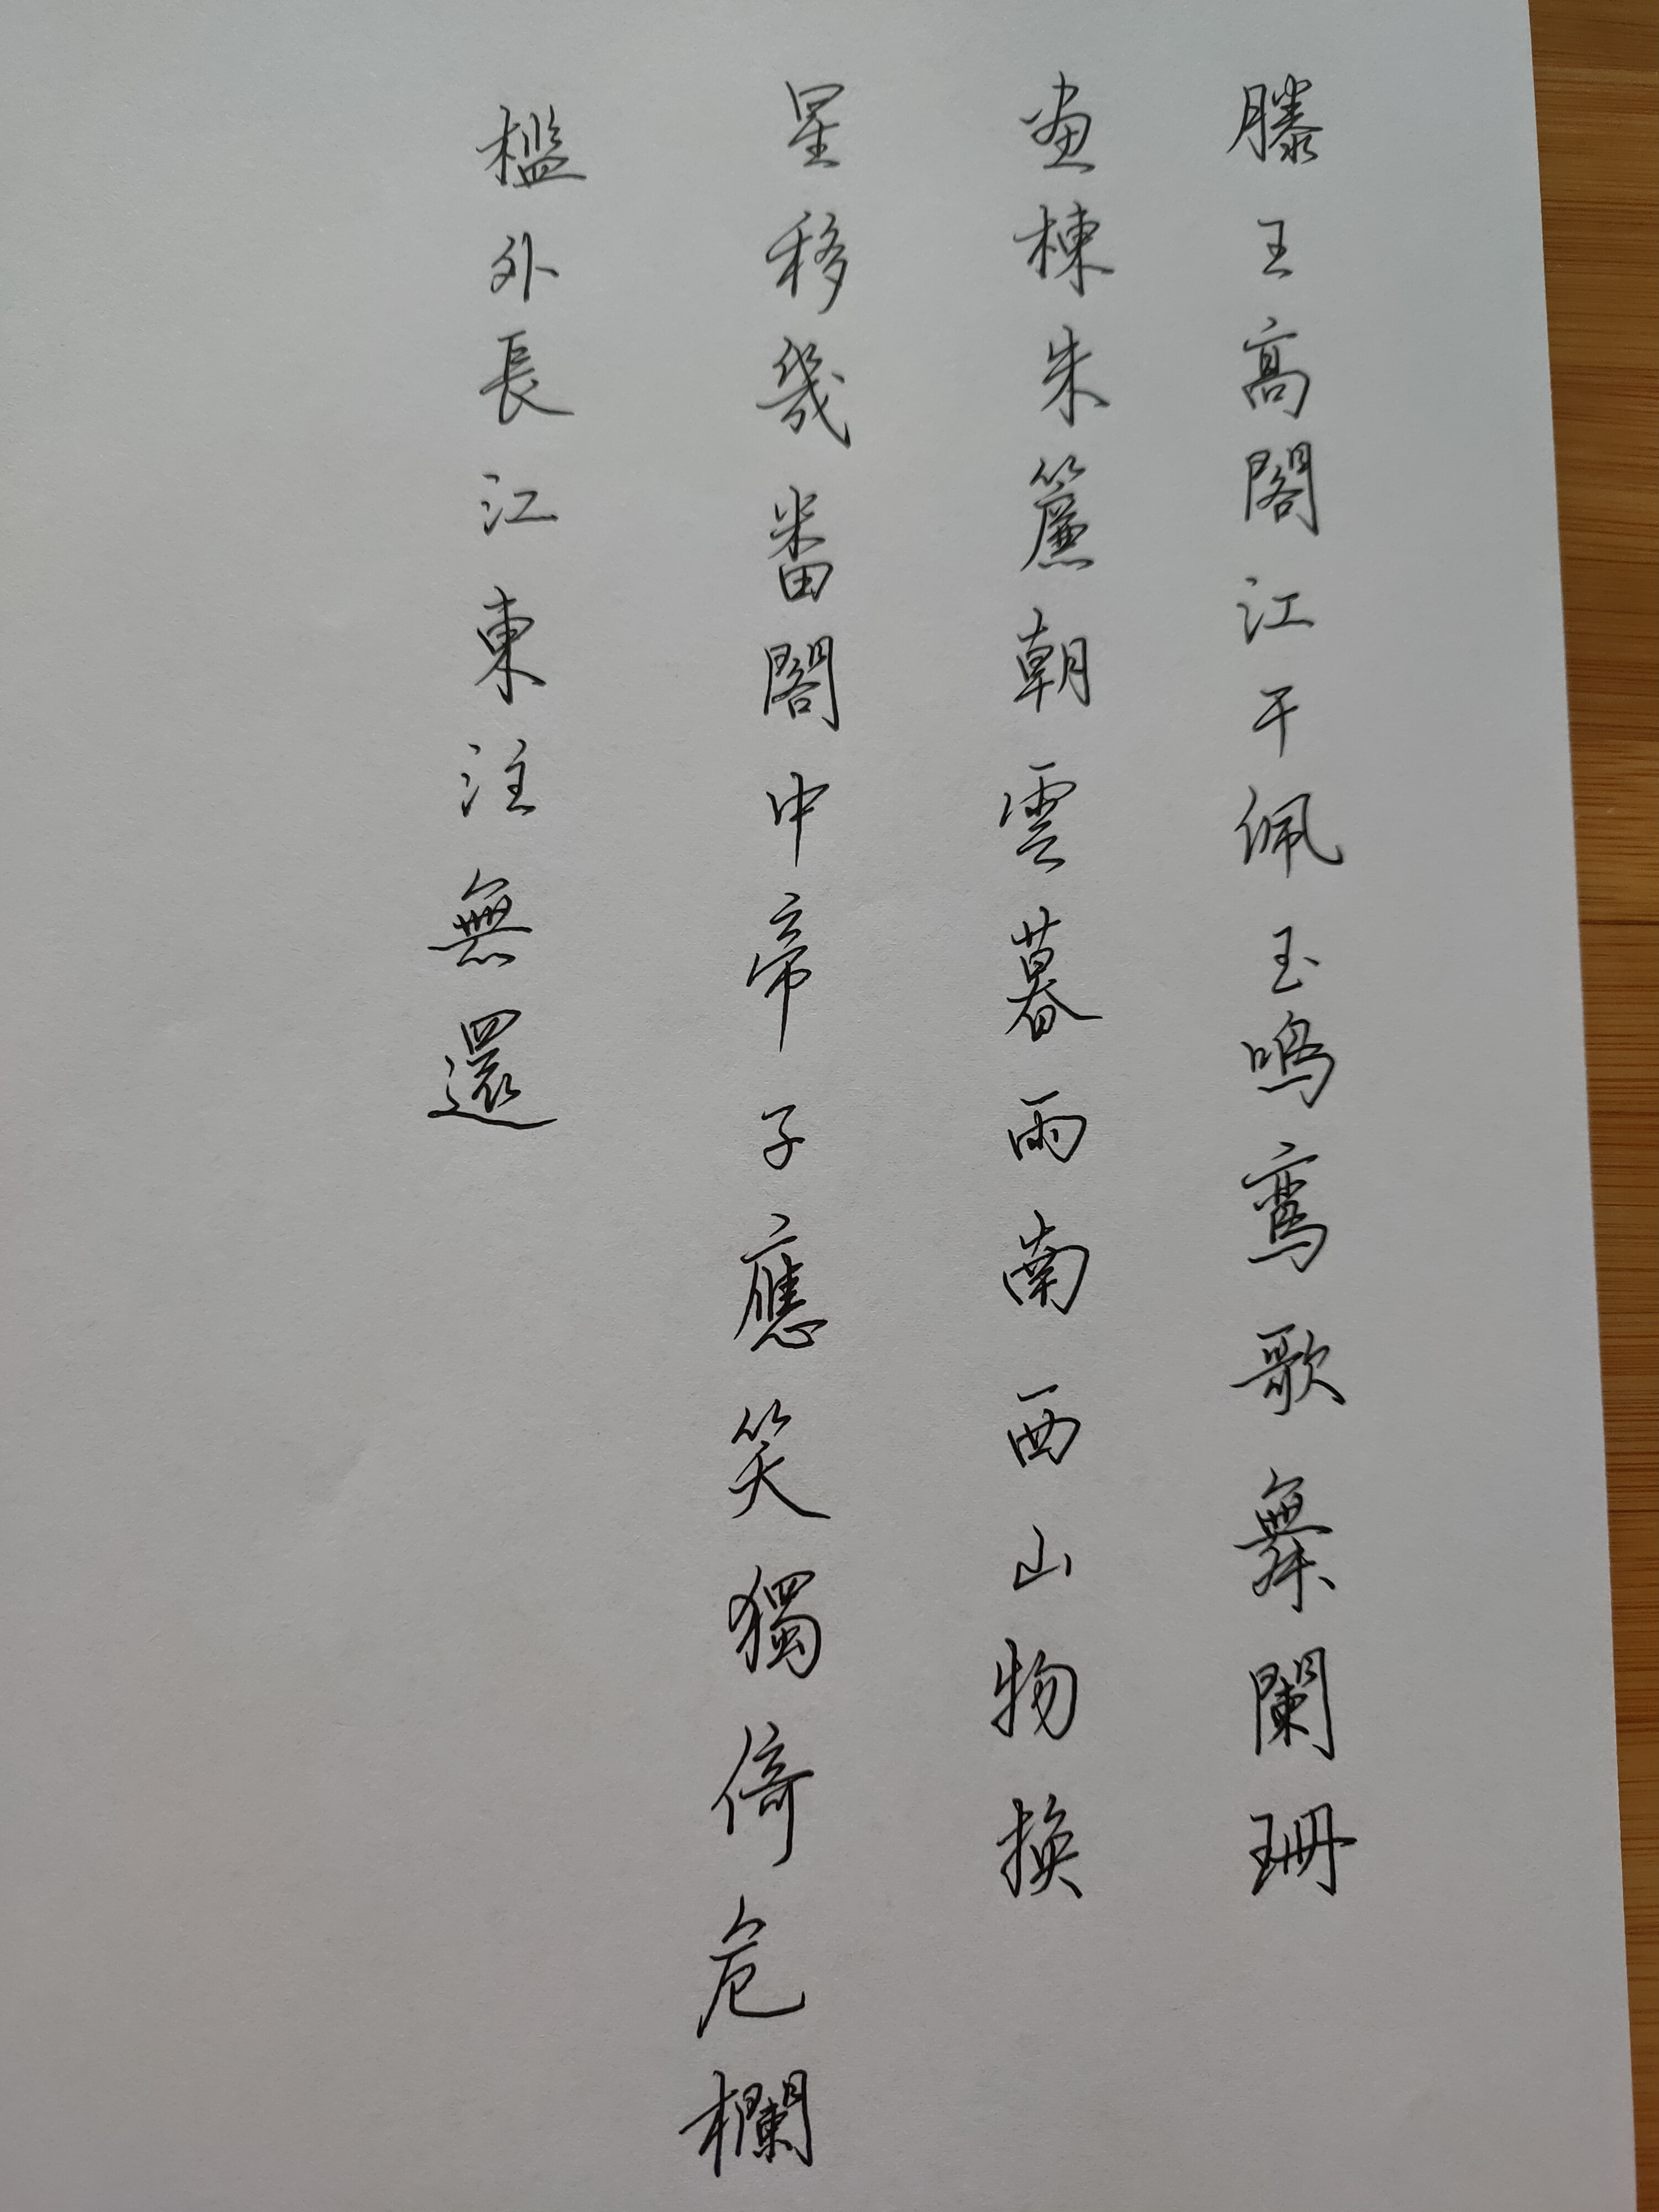 滕王高閣江干佩玉鳴鸾歌舞闌珊
画棟朱簾朝雲暮雨南西山物換
星移幾番閣中帝子應笑獨倚危欄
檻外長江東注無還